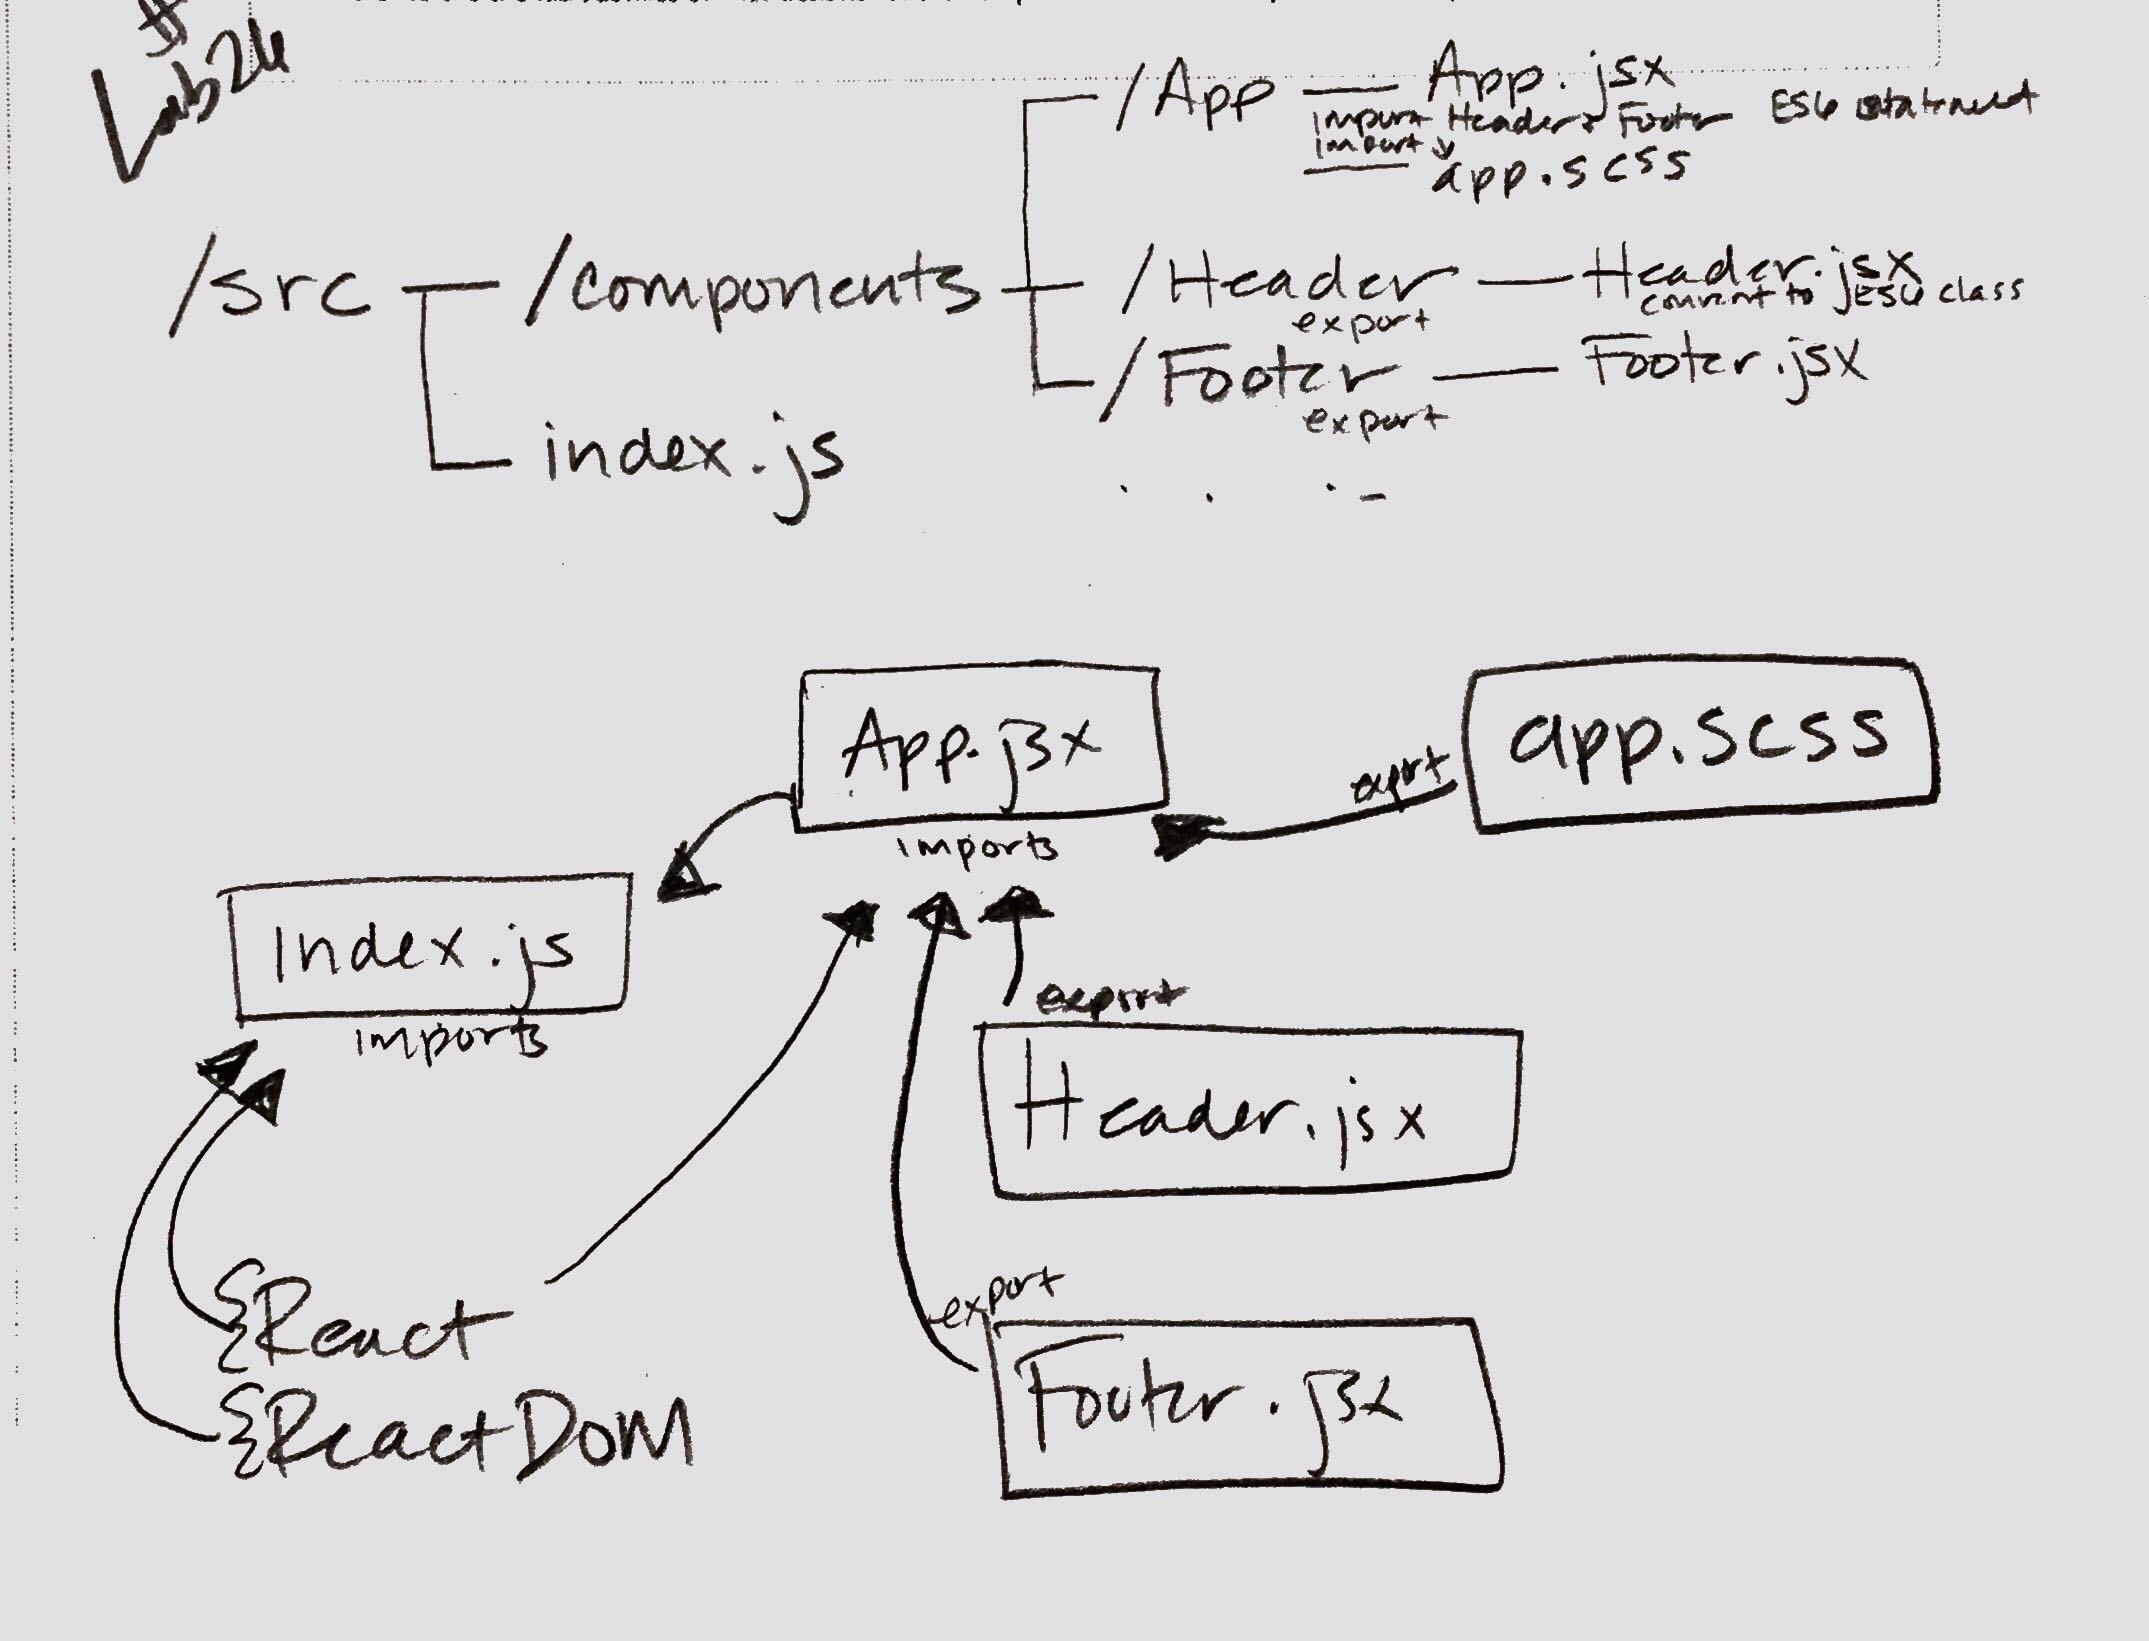 #
Lab 26
/App — App.jsx
import Header + Footer ES6 statement
import
app.scss
/src /components /Header — Header.jsx
export convert to ES6 class
/Footer — Footer.jsx
export
index.js
App.jsx
imports
app.scss
export
Index.js
imports
export
Header.jsx
{React
export
Footer.jsx
{ReactDOM